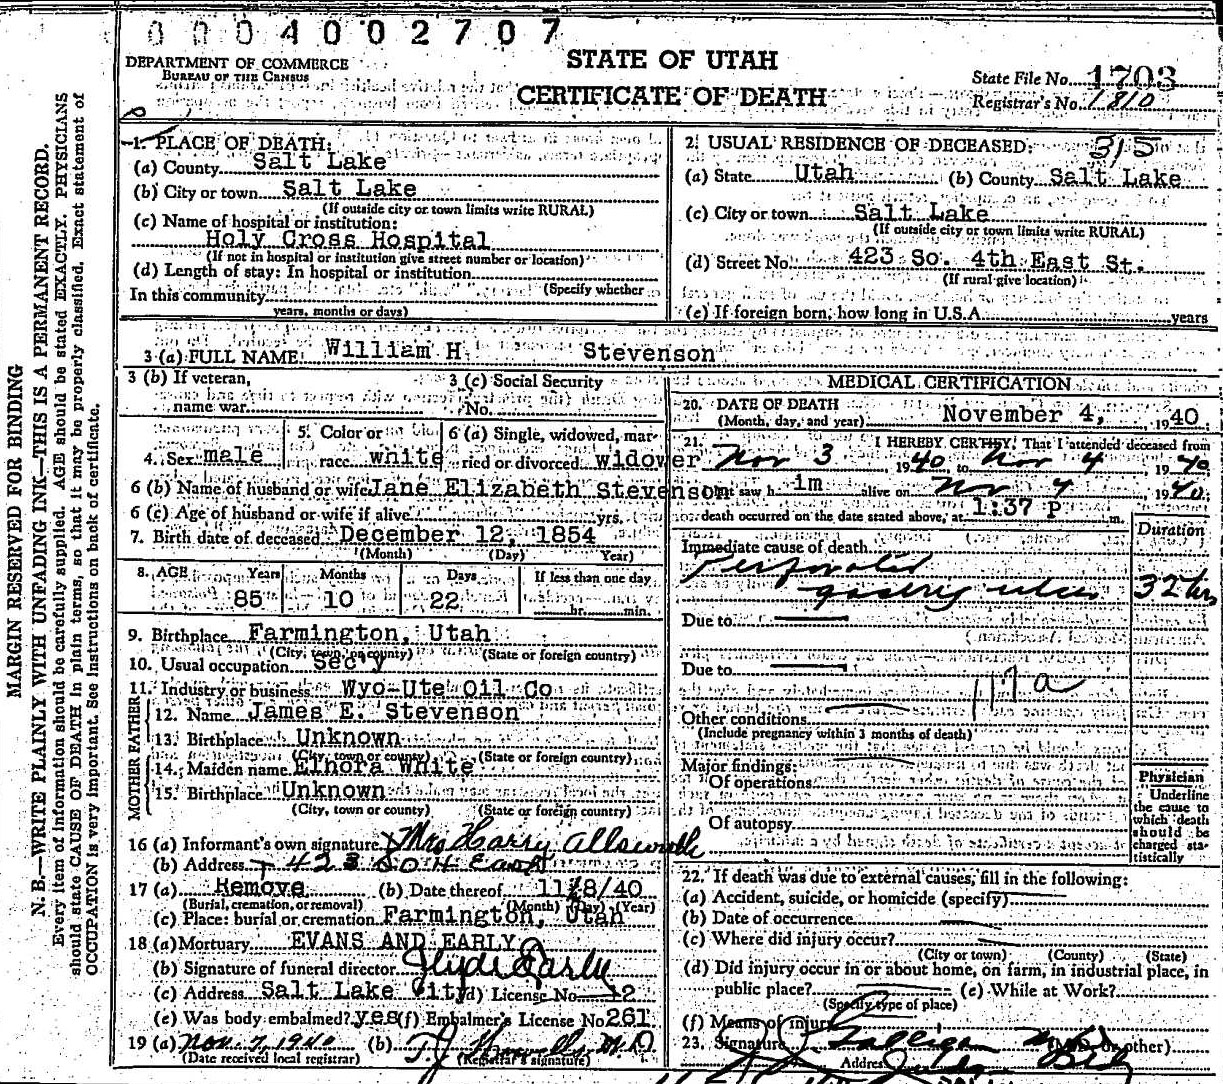 0004002707
STATE OF UTAH
DEPARTMENT OF COMMERCE
BUREAU OF THE CENSUS
CERTIFICATE OF DEATH
State File No. 1703
Registrar's No. 1810
MARGIN RESERVED FOR BINDING
N. B.—WRITE PLAINLY WITH UNFADING INK—THIS IS A PERMANENT RECORD.
Every item of information should be carefully supplied. AGE should be stated EXACTLY. PHYSICIANS
should state CAUSE OF DEATH in plain terms, so that it may be properly classified. Exact statement of
OCCUPATION is very important. See instructions on back of certificate.
1. PLACE OF DEATH:
(a) County Salt Lake
(b) City or town Salt Lake
(If outside city or town limits write RURAL)
(c) Name of hospital or institution:
Holy Cross Hospital
(If not in hospital or institution give street number or location)
(d) Length of stay: In hospital or institution
(Specify whether
In this community
years, months or days)
2. USUAL RESIDENCE OF DECEASED: 315
(a) State Utah (b) County Salt Lake
(c) City or town Salt Lake
(If outside city or town limits write RURAL)
(d) Street No. 423 So. 4th East St.
(If rural give location)
(e) If foreign born, how long in U.S.A. years
3 (a) FULL NAME: William H Stevenson
3 (b) If veteran,
name war
3 (c) Social Security
No.
4. Sex male
5. Color or
race white
6 (a) Single, widowed, mar-
ried or divorced widower
6 (b) Name of husband or wife Jane Elizabeth Stevenson
6 (c) Age of husband or wife if alive yrs.
7. Birth date of deceased December 12, 1854
(Month) (Day) Year)
8. AGE Years Months Days If less than one day
85 10 22 hr. min.
9. Birthplace Farmington, Utah
(City, town, or county) (State or foreign country)
10. Usual occupation Sec'y
11. Industry or business Wyo-Ute Oil Co
FATHER
12. Name James E. Stevenson
13. Birthplace Unknown
(City, town or county) (State or foreign country)
MOTHER
14. Maiden name Elnora White
15. Birthplace Unknown
(City, town or county) (State or foreign country)
16 (a) Informant's own signature Mrs Harry Allsworth
(b) Address 423 So 4 East
17 (a) Remove (b) Date thereof 11/8/40
(Burial, cremation, or removal) (Month) (Day) (Year)
(c) Place: burial or cremation Farmington, Utah
18 (a) Mortuary EVANS AND EARLY
(b) Signature of funeral director Clyde Early
(c) Address Salt Lake City (d) License No. 12
(e) Was body embalmed? yes (f) Embalmer's License No. 261
19 (a) Nov. 7, 1940 (b) T.J. Howells M.D
(Date received local registrar) (Registrar's signature)
MEDICAL CERTIFICATION
20. DATE OF DEATH
(Month, day, and year) November 4, 1940.
21. I HEREBY CERTIFY: That I attended deceased from
Nov 3 1940 to Nov 4 1940
last saw him alive on Nov 4 1940.
death occurred on the date stated above, at 1:37 P m.
Duration
Immediate cause of death
Perforated
gastric ulcer 32 hrs
Due to
Due to
117a
Other conditions
(Include pregnancy within 3 months of death)
Major findings:
Of operations
Of autopsy
Physician
Underline
the cause to
which death
should be
charged sta-
tistically
22. If death was due to external causes, fill in the following:
(a) Accident, suicide, or homicide (specify)
(b) Date of occurrence
(c) Where did injury occur?
(City or town) (County) (State)
(d) Did injury occur in or about home, on farm, in industrial place, in
public place? (e) While at Work?
(Specify type of place)
(f) Means of injury
23. Signature Galligan M.D. (M.D. or other)
Address